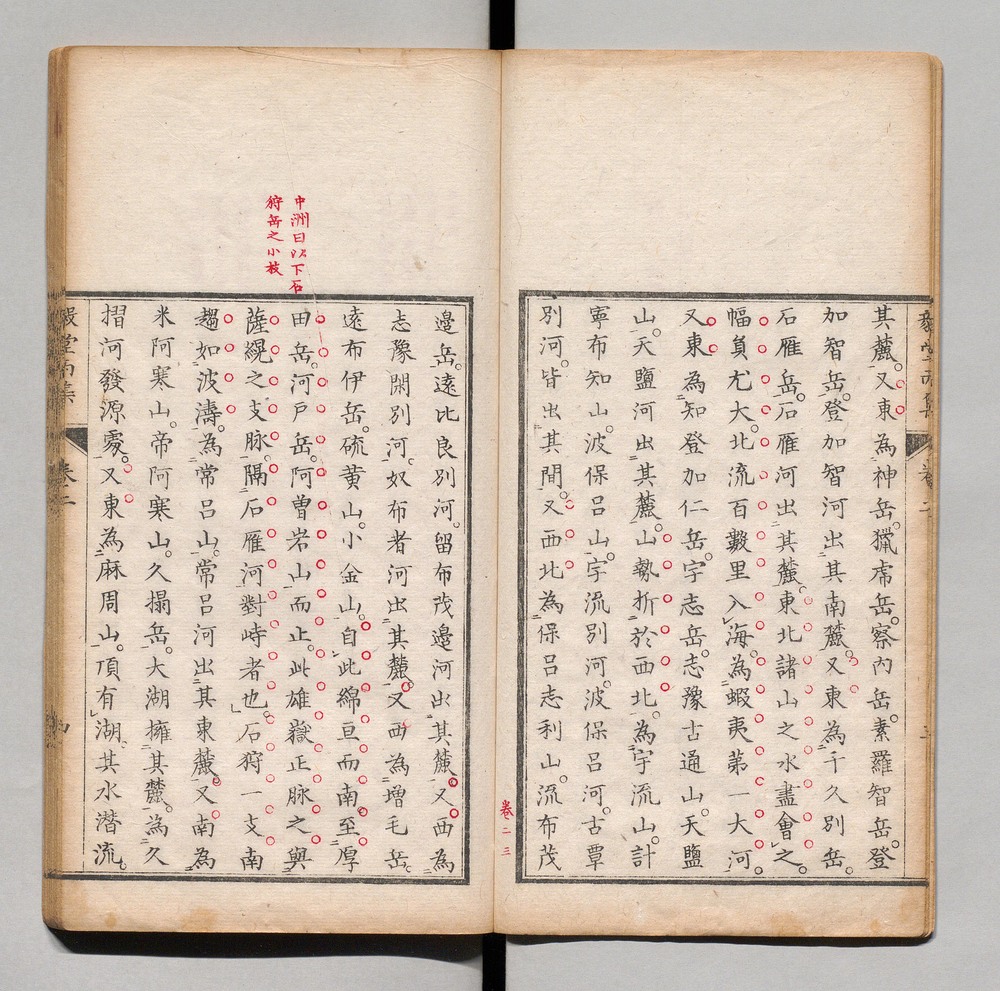 其麓。又東為神岳。獵虎岳。察內岳。素羅智岳。登
加智岳。登加智河出其南麓。又東為千久別岳。
石雁岳。石雁河出其麓。東北諸山之水盡會之。
幅員尤大。北流百數里入海。為蝦夷第一大河。
又東為知登加仁岳。宇志岳。志豫古通山。天鹽
山。天鹽河出其麓。山勢折於西北。為宇流山。計
寧布知山。波保呂山。宇流別河。波保呂河。古覃
別河。皆出其間。又西北為保呂志利山。流布茂
卷二 三
邊岳。遠比良別河。留布茂邊河出其麓。又西為
志豫閑別河。奴布者河出其麓。又西為增毛岳。
遠布伊岳。硫黃山。小金山。自此綿亘而南。至厚
田岳。河戶岳。阿曾岩山而止。此雄嶽正脉之與
薩縨之支脉。隔石雁河對峙者也。石狩一支南
趨如波濤。為常呂山。常呂河出其東麓。又南為
米阿寒山。帝阿寒山。久搨岳。大湖擁其麓。為久
摺河發源處。又東為麻周山。頂有湖。其水潛流。
中洲曰以下石
狩岳之小枝
卷二